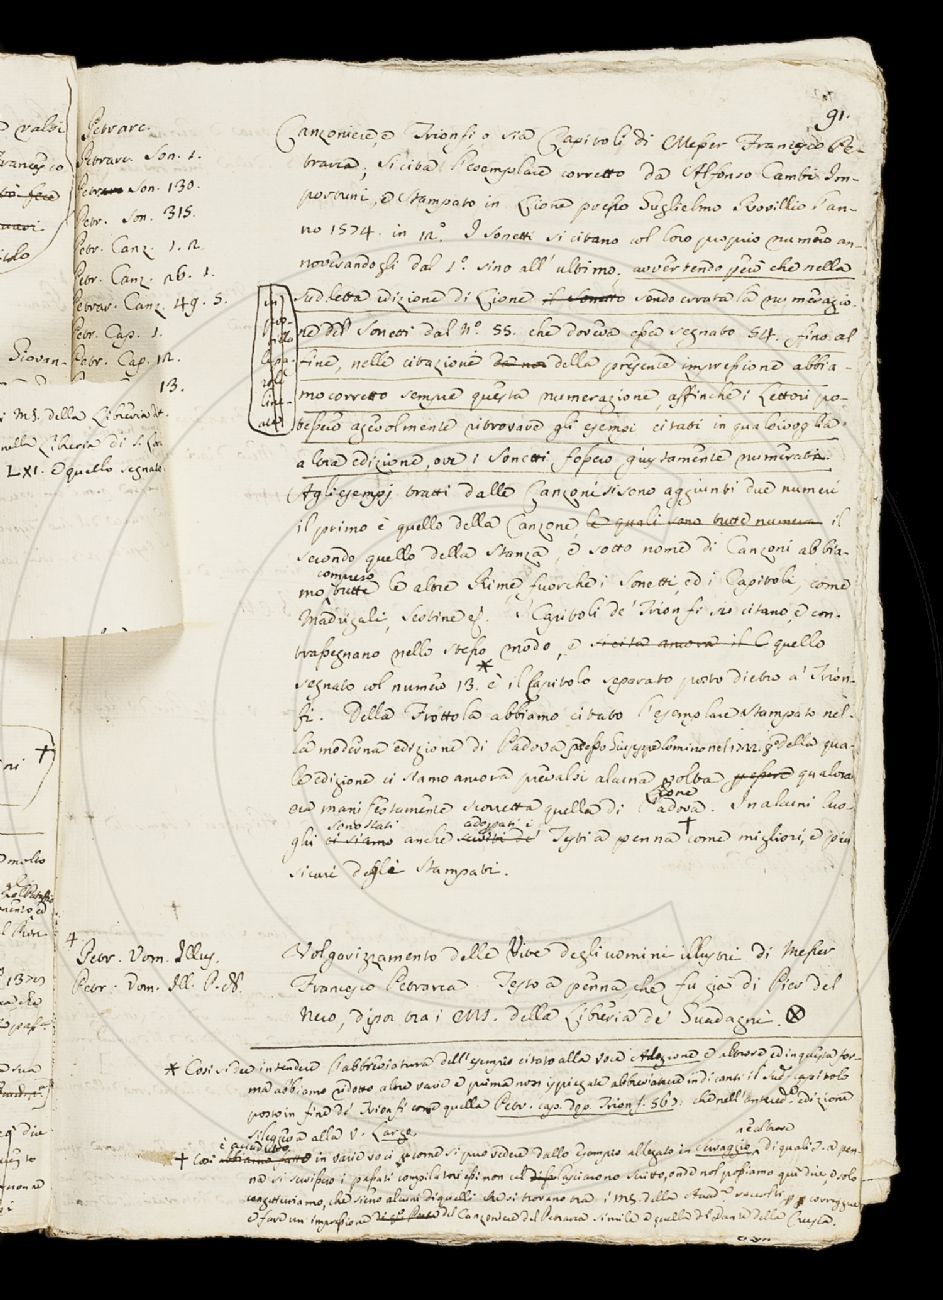 91.
Petrarc.
Petrarc. Son. 1.
Petrarc Son. 130.
Petr. Son. 315.
Petr. Canz. 1. 2.
Petr. Canz. 26. 1.
Petrar. Canz. 49. 5.
Petr. Cap. 1.
Petr. Cap. 12.
13.
Canzoniere, e Trionfi o sia Capitoli di Messer Francesco Pe-
trarca; si cita l'esemplare corretto da Alfonso Cambi Im-
portuni, e stampato in Lione presso Guglielmo Rovillio l'an-
no 1574. in 12.° I Sonetti si citano col loro proprio numero an-
noverandogli dal 1.° sino all'ultimo, avvertendo però che nella
sud.letta edizione di Lione il Sonetto sendo errata la numerazio-
ne de' Sonetti dal N.° 55. che doveva esser segnato 54. fino al
fine, nelle citazione della presente impressione abbia-
mo corretto sempre questa numerazione, affinchè i Lettori po-
tessero agevolmente ritrovare gli esempi citati in qualsivoglia
altra edizione, ove i Sonetti fossero giustamente numerati.
in
pro-
le pa-
role
line-
ate
Agli esempj tratti dalle Canzoni si sono aggiunti due numeri
il primo è quello della Canzone le quali sono tutte numera il
secondo quello della Stanza, e sotto nome di Canzoni abbia-
compreso
mo tutte le altre Rime, fuorchè i Sonetti, ed i Capitoli, come
Madrigali, Sestine &. I Capitoli de' Trionfi si citano, e con-
trassegnano nello stesso modo, e si cita ancora il C quello
segnato col numero 13.* è il Capitolo separato posto dietro a' Trion-
fi. Della Frottola abbiamo citato l'esemplare stampato nel-
la moderna edizione di Padova presso Giuseppe Comino nel 1722. della qua-
le edizione ci siamo ancora prevalsi alcuna volta qualora
era manifestamente scorretta quella di Padova. In alcuni luo-
Lione
sono stati adoprati i
ghi ci siamo anche serviti de' Testi a penna come migliori, e più
sicuri degli Stampati.
Petr. Uom. Illus.
Petr. Uom. Ill. P. N.
Volgarizzamento delle Vite degli uomini illustri di Messer
Francesco Petrarca. Testo a penna, che fu già di Pier del
Nero, dipoi tra i MS. della Libreria de' Guadagni.
* Così si dee intendere l'abbreviatura dell'esempio citato alla voce Adozione e altrove ed in questa for-
ma abbiamo ridotto altre varie e prima non ispiegate abbreviature indicanti il sud.° capitolo
posto in fine de' Trionfi come quella Petr. cap. dop. Trionf. 567. che nell'anteced.e edizione
si legge alla V. Large.
e altrove
è accaduto
† Così abbiamo fatto in varie voci, come si può vedere dallo esempio allegato in Coraggio, di quali T. a pen-
na si servissero i passati compilatori essi non ce lo lasciarono scritto, onde noi possiamo qui dire, e solo
congetturiamo, che sieno alcuni di quelli che si trovano tra i MS. della
e fare un'impressione del Canzoniere del Petrarca simile a quella di Dante della Crusca.
i MS. della Libreria
nella Libreria di S. Lor
LXI. e quello segnat
Giovan-
Francesco
molto
1370